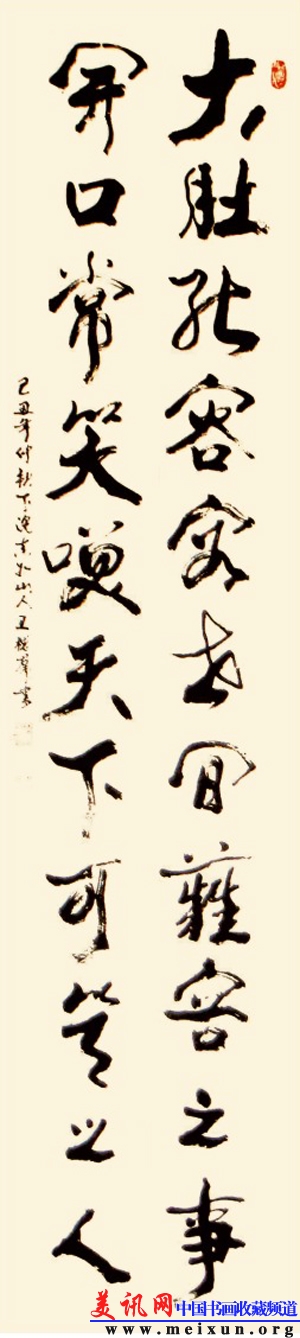 大肚能容容世間難容之事
開口常笑咲天下可笑之人
己丑年仲秋下浣山人王書
美讯网 中国书画收藏频道
www.meixun.org